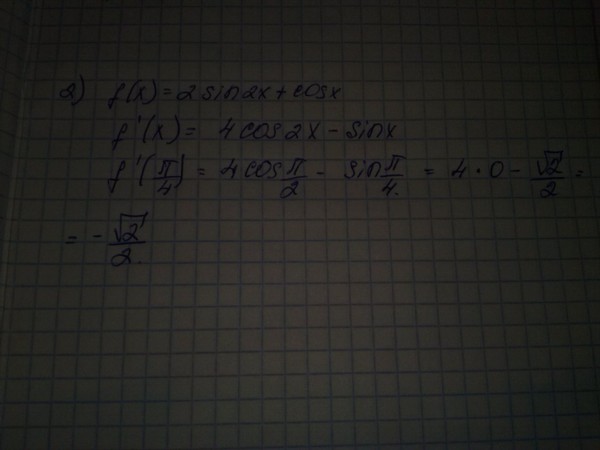 2) f(x) = 2 sin 2x + cos x
f'(x) = 4 cos 2x - sin x
f'(π/4) = 4 cos π/2 - sin π/4 = 4 · 0 - √2/2 =
= - √2/2.